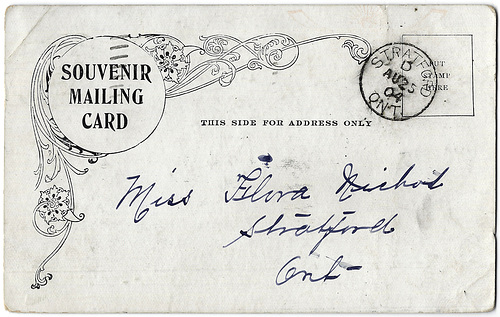 SOUVENIR
MAILING
CARD
THIS SIDE FOR ADDRESS ONLY
STRATFORD
D
AU 25
04
ONT
PUT
STAMP
HERE
Miss Flora Nichol
Stratford
Ont